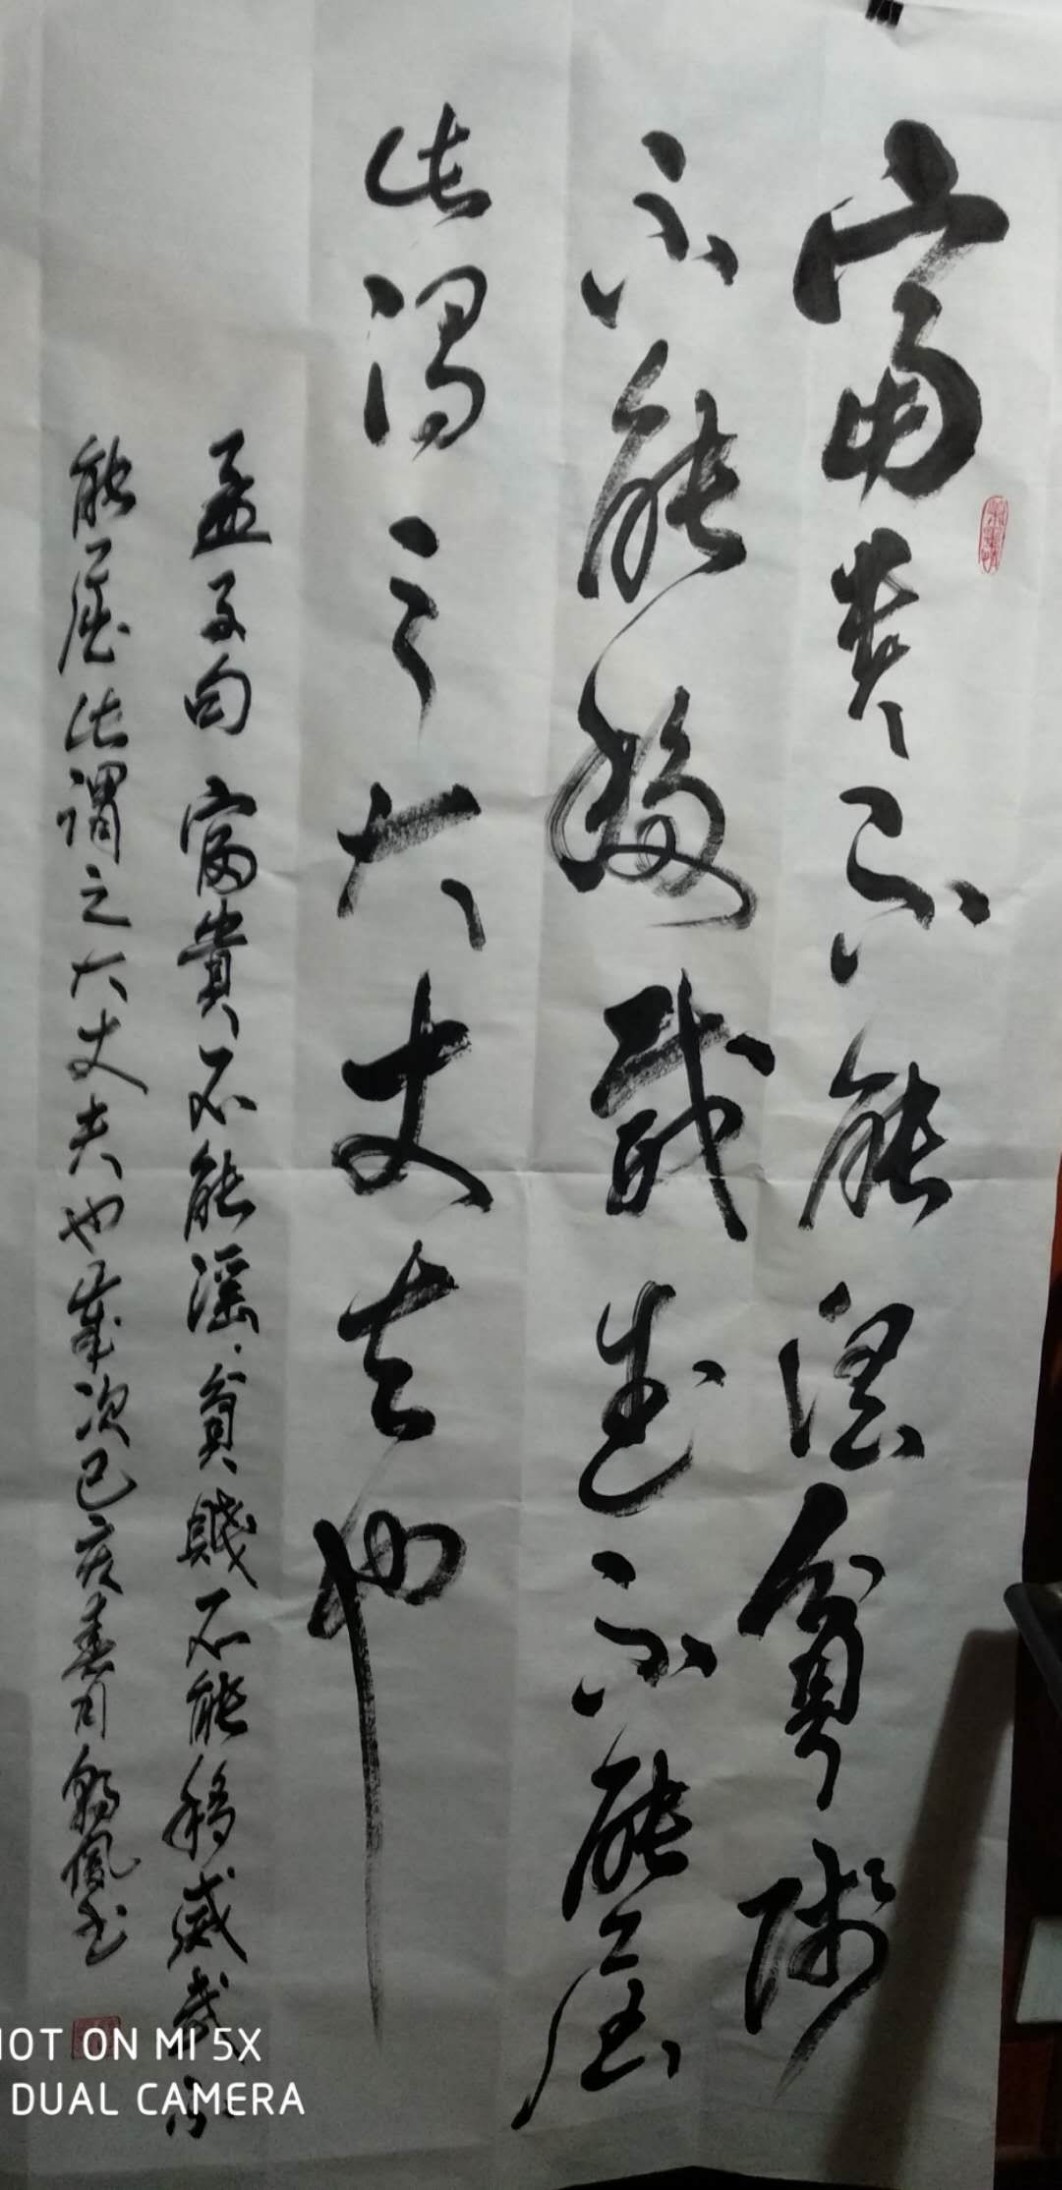 富貴不能淫貧賤
不能移威武不能屈
此謂之大丈夫也
孟子句 富貴不能淫貧賤不能移威武不
能屈此謂之大丈夫也歲次己亥春月 鳳書
SHOT ON MI 5X
DUAL CAMERA